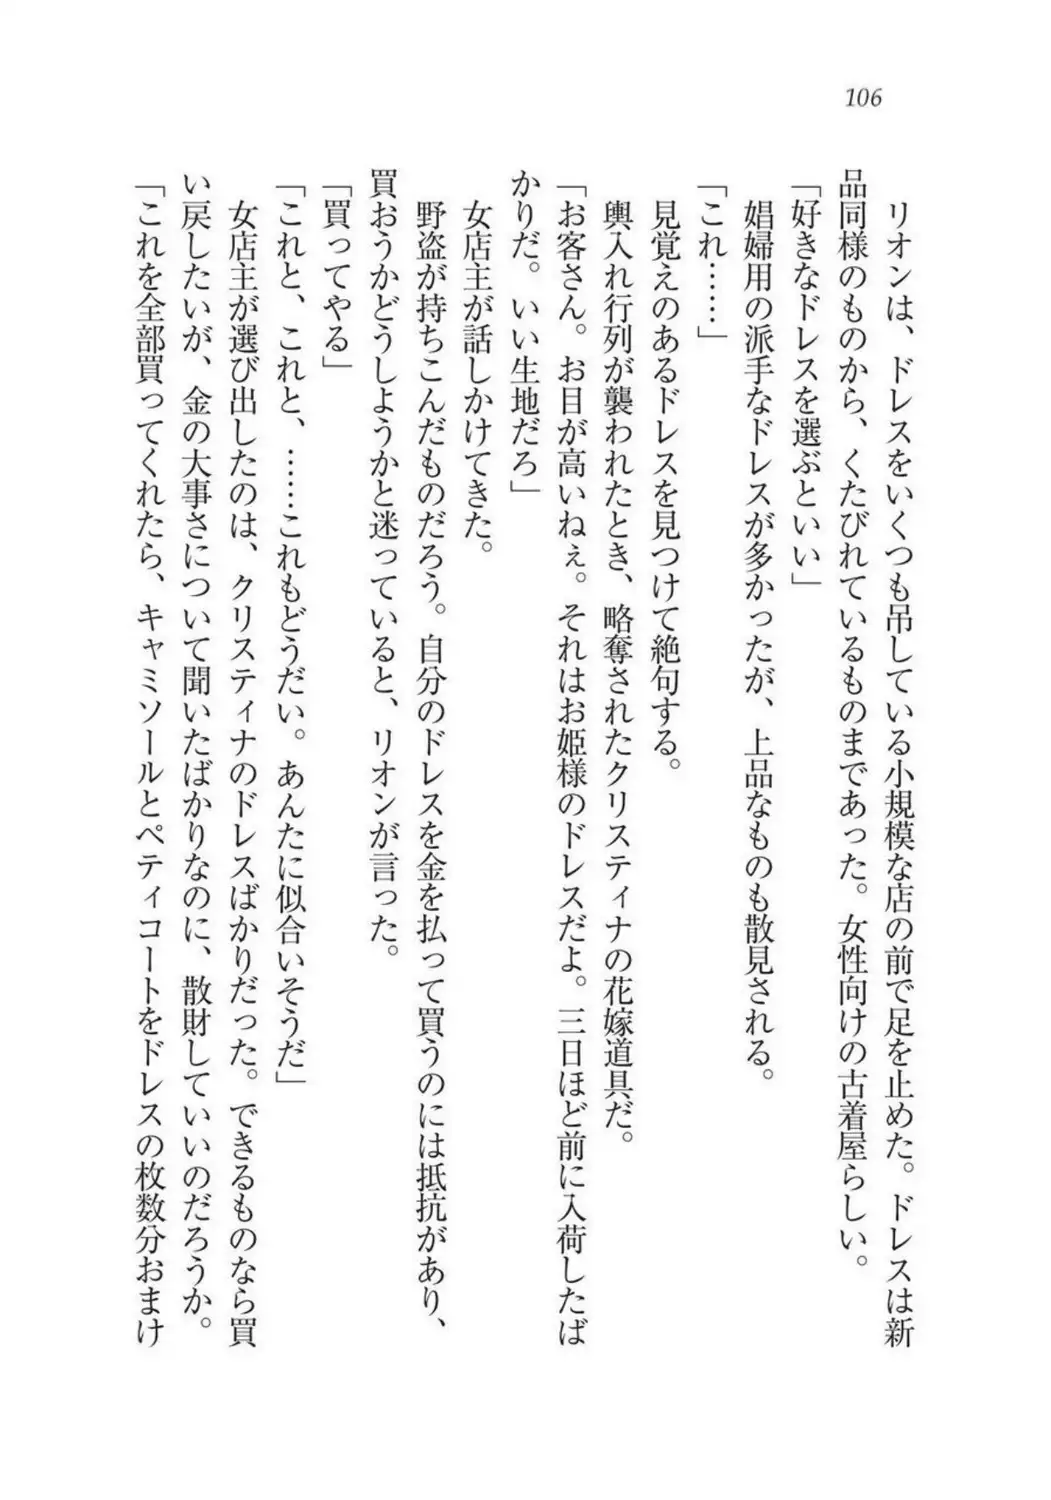 106
　リオンは、ドレスをいくつも吊している小規模な店の前で足を止めた。ドレスは新
品同様のものから、くたびれているものまであった。女性向けの古着屋らしい。
「好きなドレスを選ぶといい」
　娼婦用の派手なドレスが多かったが、上品なものも散見される。
「これ……」
　見覚えのあるドレスを見つけて絶句する。
　輿入れ行列が襲われたとき、略奪されたクリスティナの花嫁道具だ。
「お客さん。お目が高いねぇ。それはお姫様のドレスだよ。三日ほど前に入荷したば
かりだ。いい生地だろ」
　女店主が話しかけてきた。
　野盗が持ちこんだものだろう。自分のドレスを金を払って買うのには抵抗があり、
買おうかどうしようかと迷っていると、リオンが言った。
「買ってやる」
「これと、これと、……これもどうだい。あんたに似合いそうだ」
　女店主が選び出したのは、クリスティナのドレスばかりだった。できるものなら買
い戻したいが、金の大事さについて聞いたばかりなのに、散財していいのだろうか。
「これを全部買ってくれたら、キャミソールとペティコートをドレスの枚数分おまけ